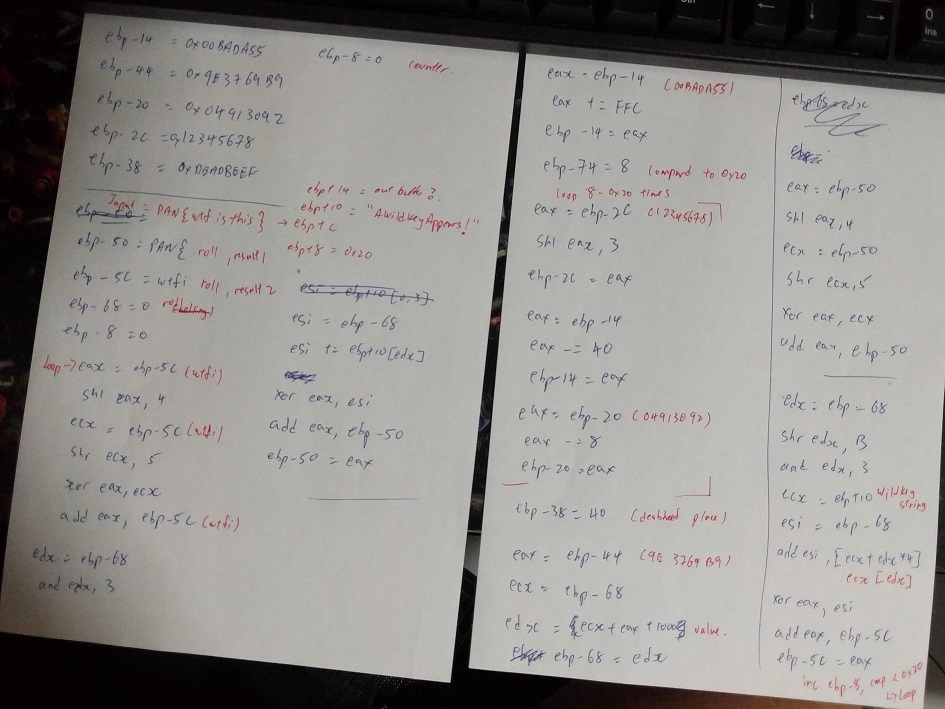 ebp-14 = 0x00BADA55
ebp-44 = 0x9E3769B9
ebp-20 = 0x04913092
ebp-2C = 0x12345678
ebp-38 = 0xDEADBEEF
Input = PAN{wtf is this} → ebp+C
ebp-50 = PAN{ roll, result 1
ebp-5C = wtfi roll, result 2
ebp-68 = 0
ebp-8 = 0
loop → eax = ebp-5C (wtfi)
shl eax, 4
ecx = ebp-5C (wtfi)
shr ecx, 5
xor eax, ecx
add eax, ebp-5C (wtfi)
edx = ebp-68
and edx, 3
ebp-8=0 counter.
ebp+14 = our buffs?
ebp+10 = "AWildKeyAppears!"
ebp+8 = 0x20
esi = ebp+10[0,3]
esi = ebp-68
esi += ebp+10[edx]
xor eax, esi
add eax, ebp-50
ebp-50 = eax
eax = ebp-14 (00BADA55)
eax += FFC
ebp-14 = eax
ebp-74 = 8 compared to 0x20
loop 8-0x20 times
eax = ebp-2C (12345678)
shl eax, 3
ebp-2C = eax
eax = ebp-14
eax -= 40
ebp-14 = eax
eax = ebp-20 (04913092)
eax -= 8
ebp-20 = eax
ebp-38 = 40 (deadbeef place)
eax = ebp-44 (9E3769B9)
ecx = ebp-68
edx = [ecx+eax+1000] value.
ebp-68 = edx
eax = ebp-50
shl eax, 4
ecx = ebp-50
shr ecx, 5
xor eax, ecx
add eax, ebp-50
edx = ebp-68
shr edx, B
and edx, 3
ecx = ebp+10 wildkey string
esi = ebp-68
add esi, [ecx+edx*4]
ecx[edx]
xor eax, esi
add eax, ebp-5C
ebp-5C = eax
inc ebp-8, cmp < 0x20
↳ loop